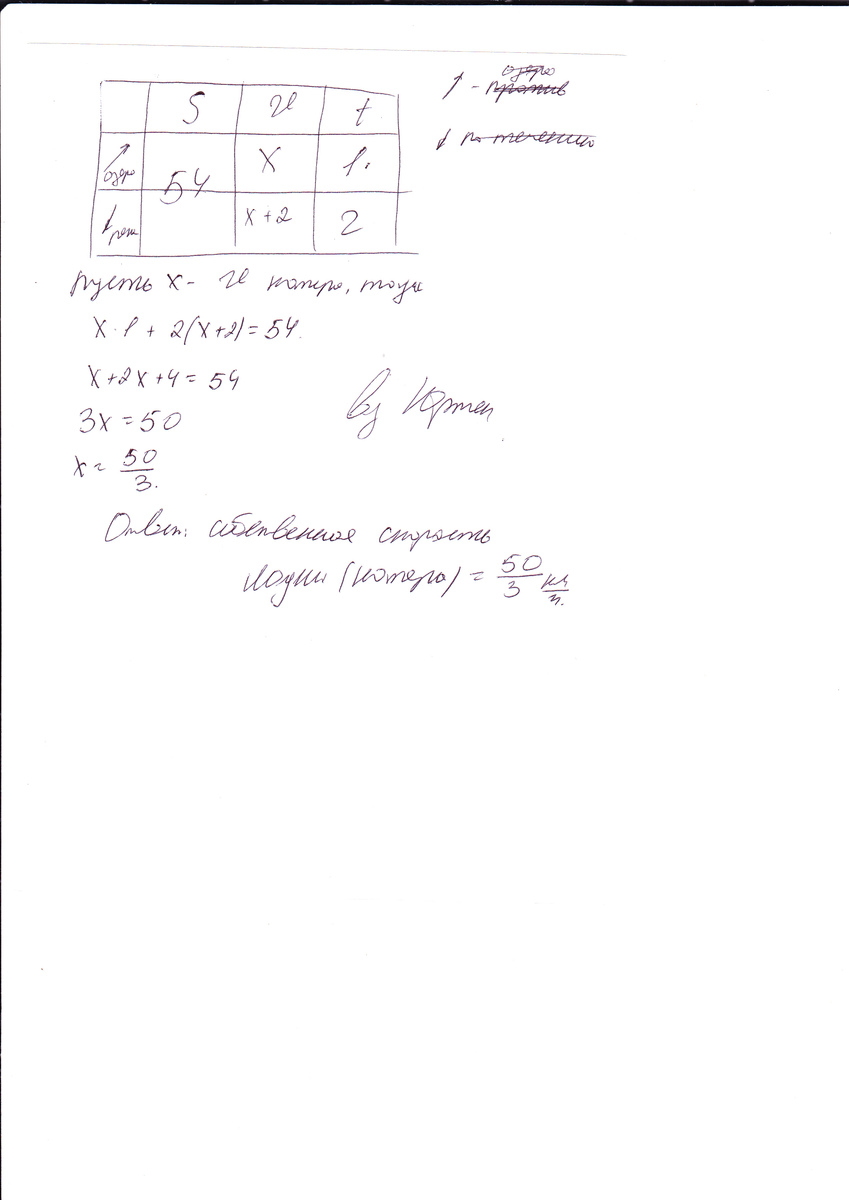 S V t
озеро 54 X 1.
река x+2 2
↑ - озеро против
↓ по течению
пусть x - V катера, тогда
x·1 + 2(x+2) = 54.
x+2x+4 = 54
3x = 50
x = 50/3.
by Юртен
Ответ: собственная скорость
лодки (катера) = 50/3 км/ч.